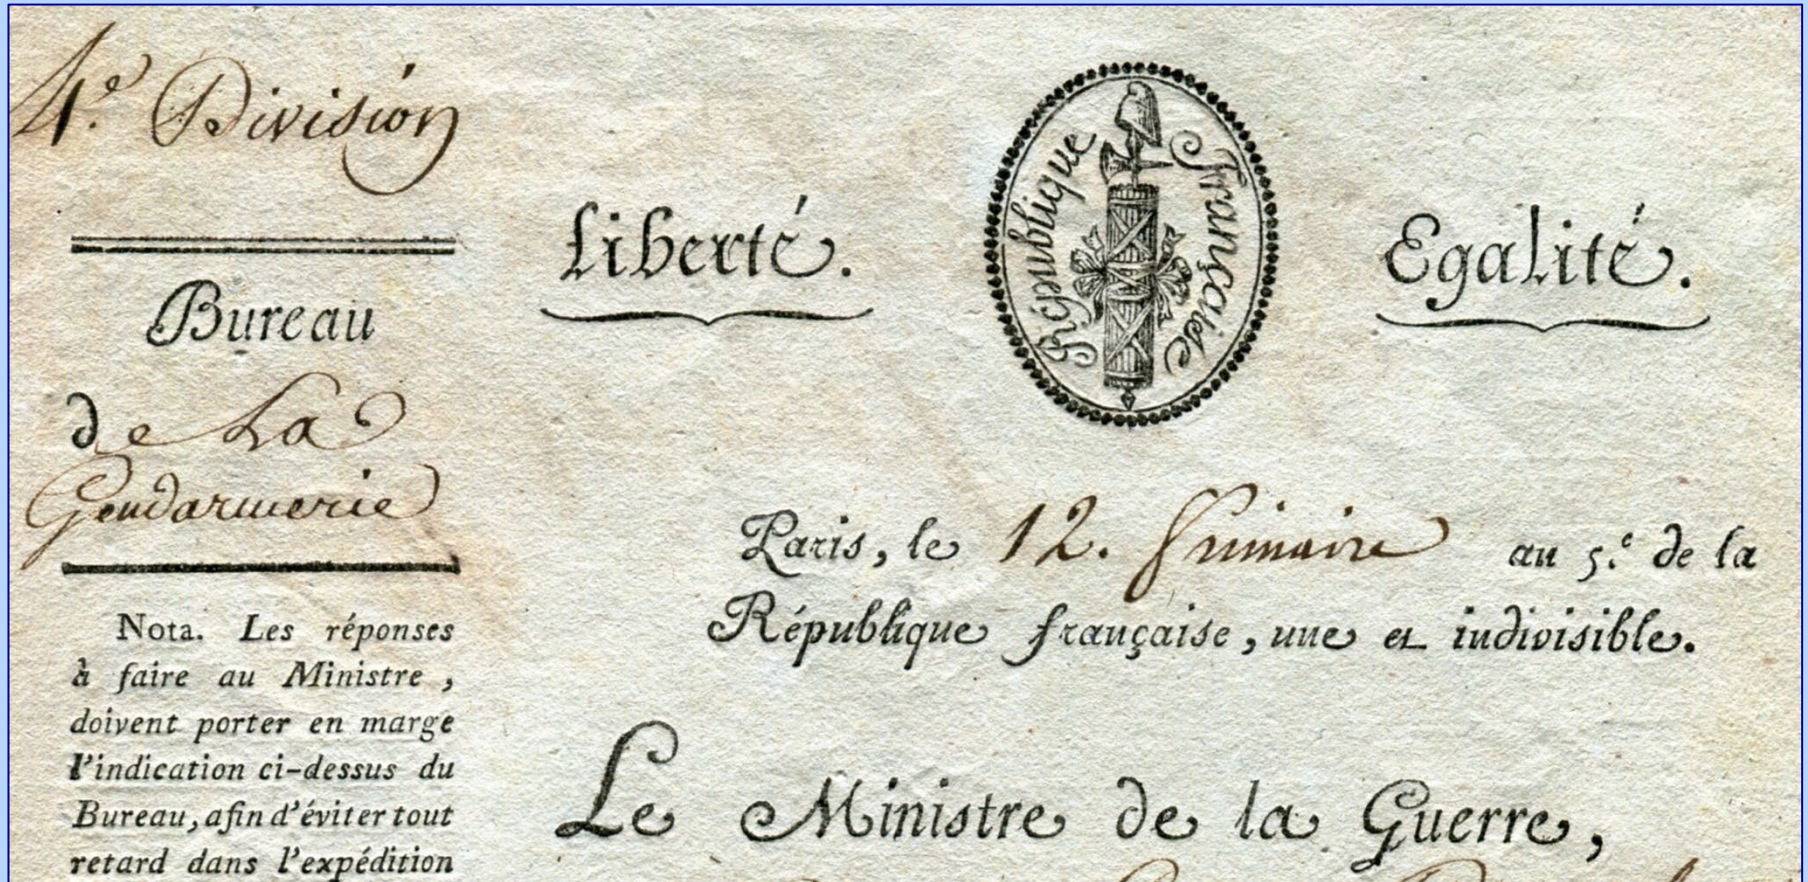 4.e Division
Bureau
de La
Gendarmerie
Nota. Les réponses
à faire au Ministre,
doivent porter en marge
l'indication ci-dessus du
Bureau, afin d'éviter tout
retard dans l'expédition
Liberté.
République Française
Egalité.
Paris, le 12. frimaire an 5.e de la
République française, une et indivisible.
Le Ministre de la Guerre,